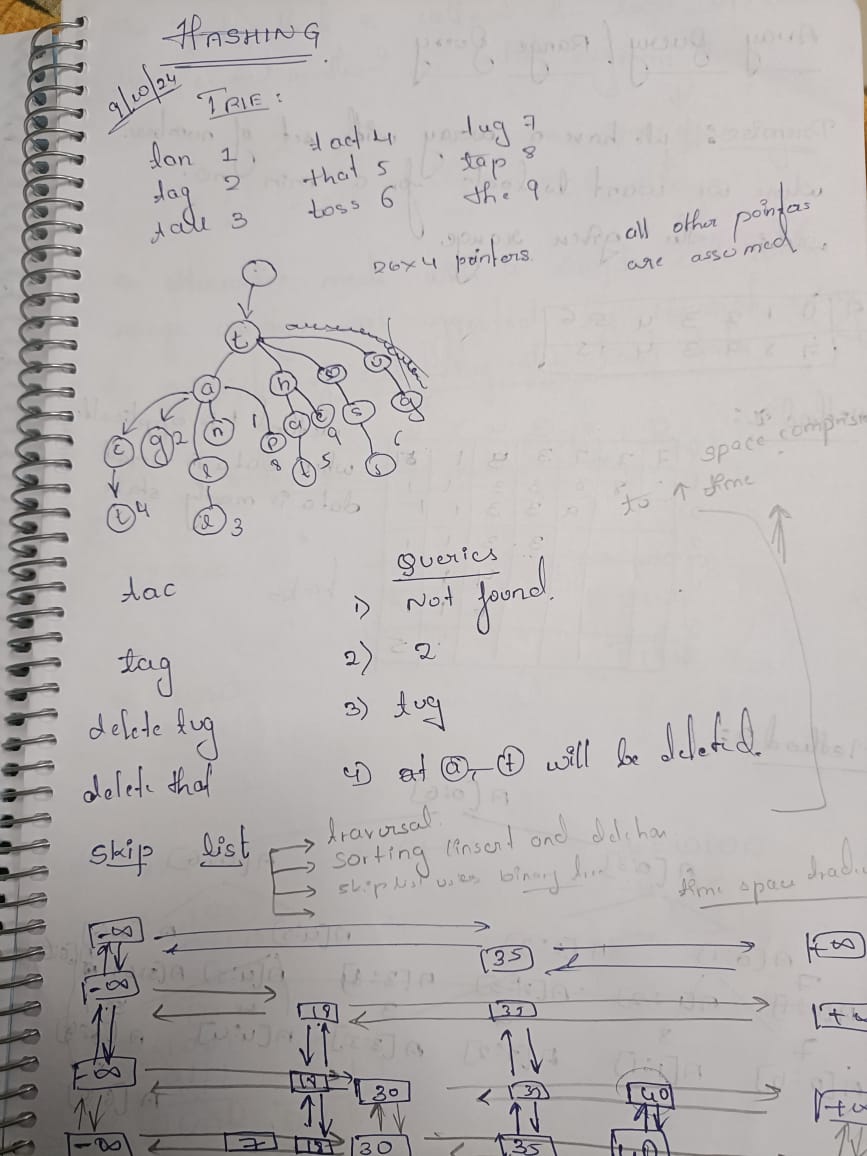 HASHING
9/10/24
TRIE :
tan 1 tact 4 tug 7
tag 2 that 5 tap 8
tall 3 toss 6 the 9
26x4 pointers
all other pointers
are assumed.
t
a h o u
c g 2 n 1 p 8 a e 9 s g
t 4 l t 5 s 6
l 3
space
to ↑ time
Queries
tac 1) Not found.
tag 2) 2
delete tug 3) tug
delete that 4) at a, t will be deleted.
skip list
traversal
sorting (insert and deletion
skip list uses binary
time space
-∞ 35 +∞
-∞ 19 35
-∞ 19 30 35 40
-∞ 7 19 30 35 40